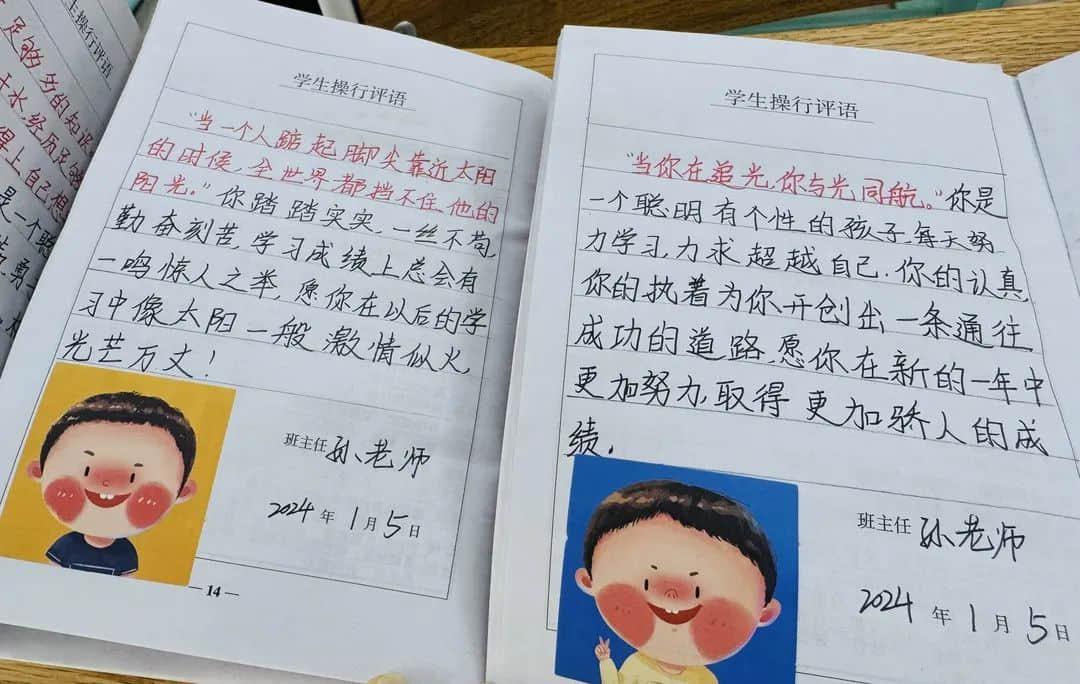 生操行评语
足够多的知识
千水,经历足够
得上自己想
是一个聪
学生操行评语
“当一个人踮起脚尖靠近太阳
的时候,全世界都挡不住他的
阳光。”你踏踏实实,一丝不苟,
勤奋刻苦,学习成绩上总会有
一鸣惊人之举,愿你在以后的学
习中像太阳一般激情似火,
光芒万丈!
班主任 孙老师
2024 年 1 月 5 日
— 14 —
学生操行评语
“当你在追光,你与光同航。”你是
一个聪明有个性的孩子,每天努
力学习,力求超越自己,你的认真,
你的执着为你开创出一条通往
成功的道路,愿你在新的一年中
更加努力,取得更加骄人的成
绩。
班主任 孙老师
2024 年 1 月 5 日